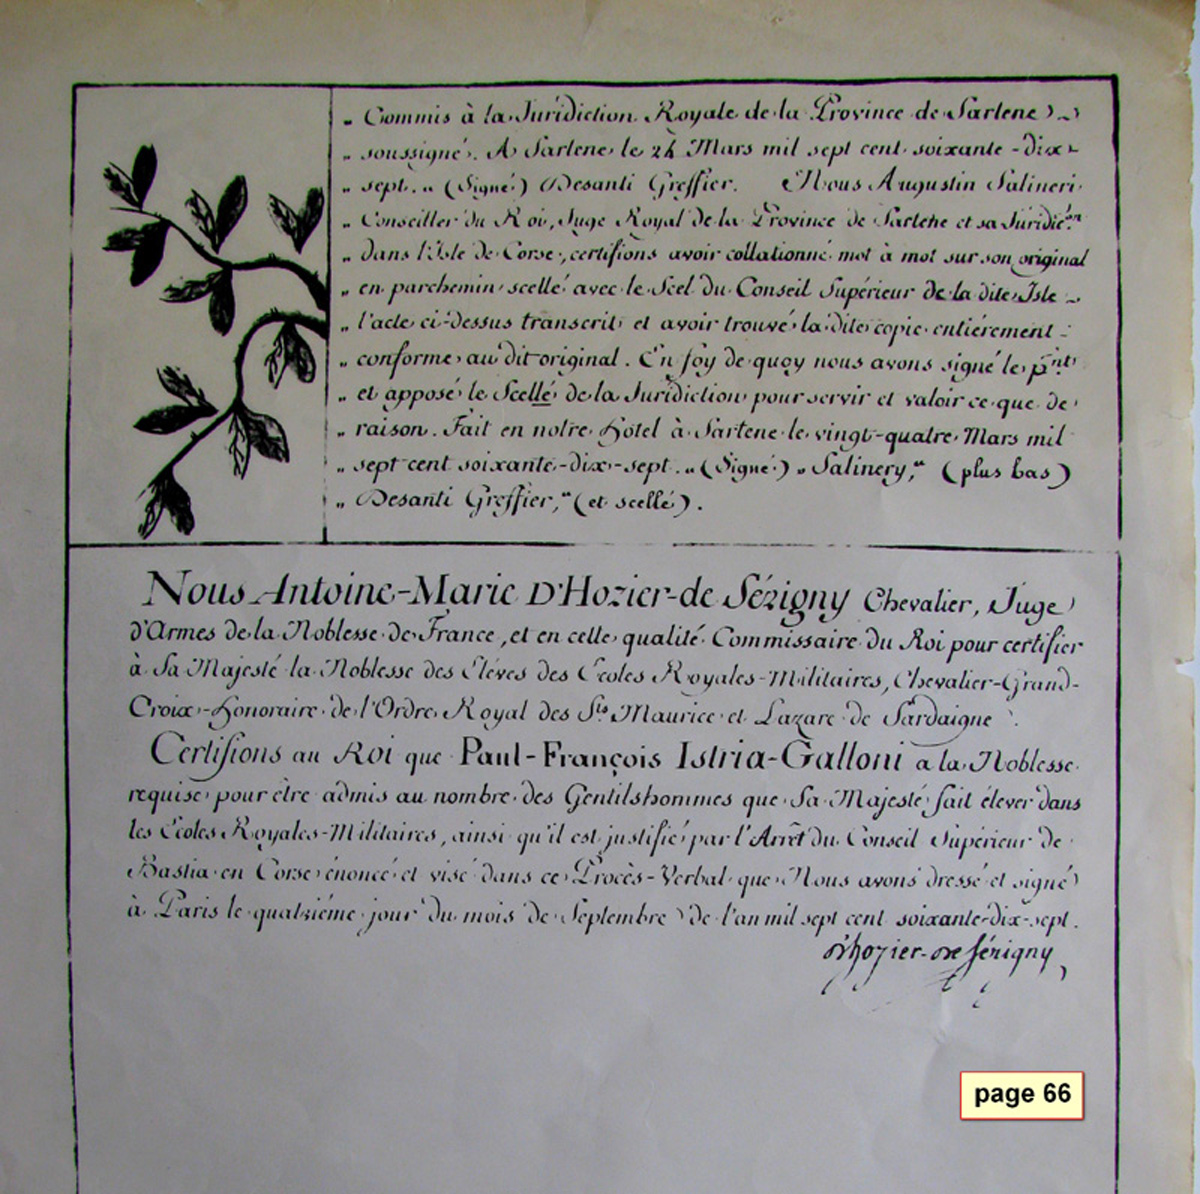 „ Commis à la Juridiction Royale de la Province de Sartene
„ soussigné. A Sartene le 24 Mars mil sept cent soixante-dix-
„ sept. “ (Signé) Desanti Greffier. Nous Augustin Salineri
„ Conseiller du Roi, Juge Royal de la Province de Sartene et sa Juridic.on
„ dans l'Isle de Corse, certifions avoir collationné mot à mot sur son original
„ en parchemin scellé avec le Scel du Conseil Supérieur de la dite Isle
„ l'acte ci-dessus transcrit et avoir trouvé la dite copie entiérement
„ conforme au dit original. En foy de quoy nous avons signé le p.nt
„ et apposé le Scellé de la Juridiction pour servir et valoir ce que de
„ raison. Fait en notre Hôtel à Sartene le vingt-quatre Mars mil
„ sept cent soixante-dix-sept. „ (Signé) „ Salinery, “ (plus bas)
„ Desanti Greffier, “ (et scellé).
Nous Antoine-Marie D'Hozier-de Sérigny Chevalier, Juge
d'Armes de la Noblesse de France, et en celle qualité Commissaire du Roi pour certifier
à Sa Majesté la Noblesse des Éléves des Écoles Royales-Militaires, Chevalier-Grand-
Croix-Honoraire de l'Ordre Royal des Sts Maurice et Lazare de Sardaigne.
Certifions au Roi que Paul-François Istria-Galloni a la Noblesse
requise pour être admis au nombre des Gentilshommes que Sa Majesté fait élever dans
les Écoles Royales-Militaires, ainsi qu'il est justifié par l'Arrêt du Conseil Supérieur de
Bastia en Corse énoncé et visé dans ce Procès-Verbal que Nous avons dressé et signé
à Paris le quatriéme jour du mois de Septembre de l'an mil sept cent soixante-dix-sept.
d'hozier-de Sérigny
page 66